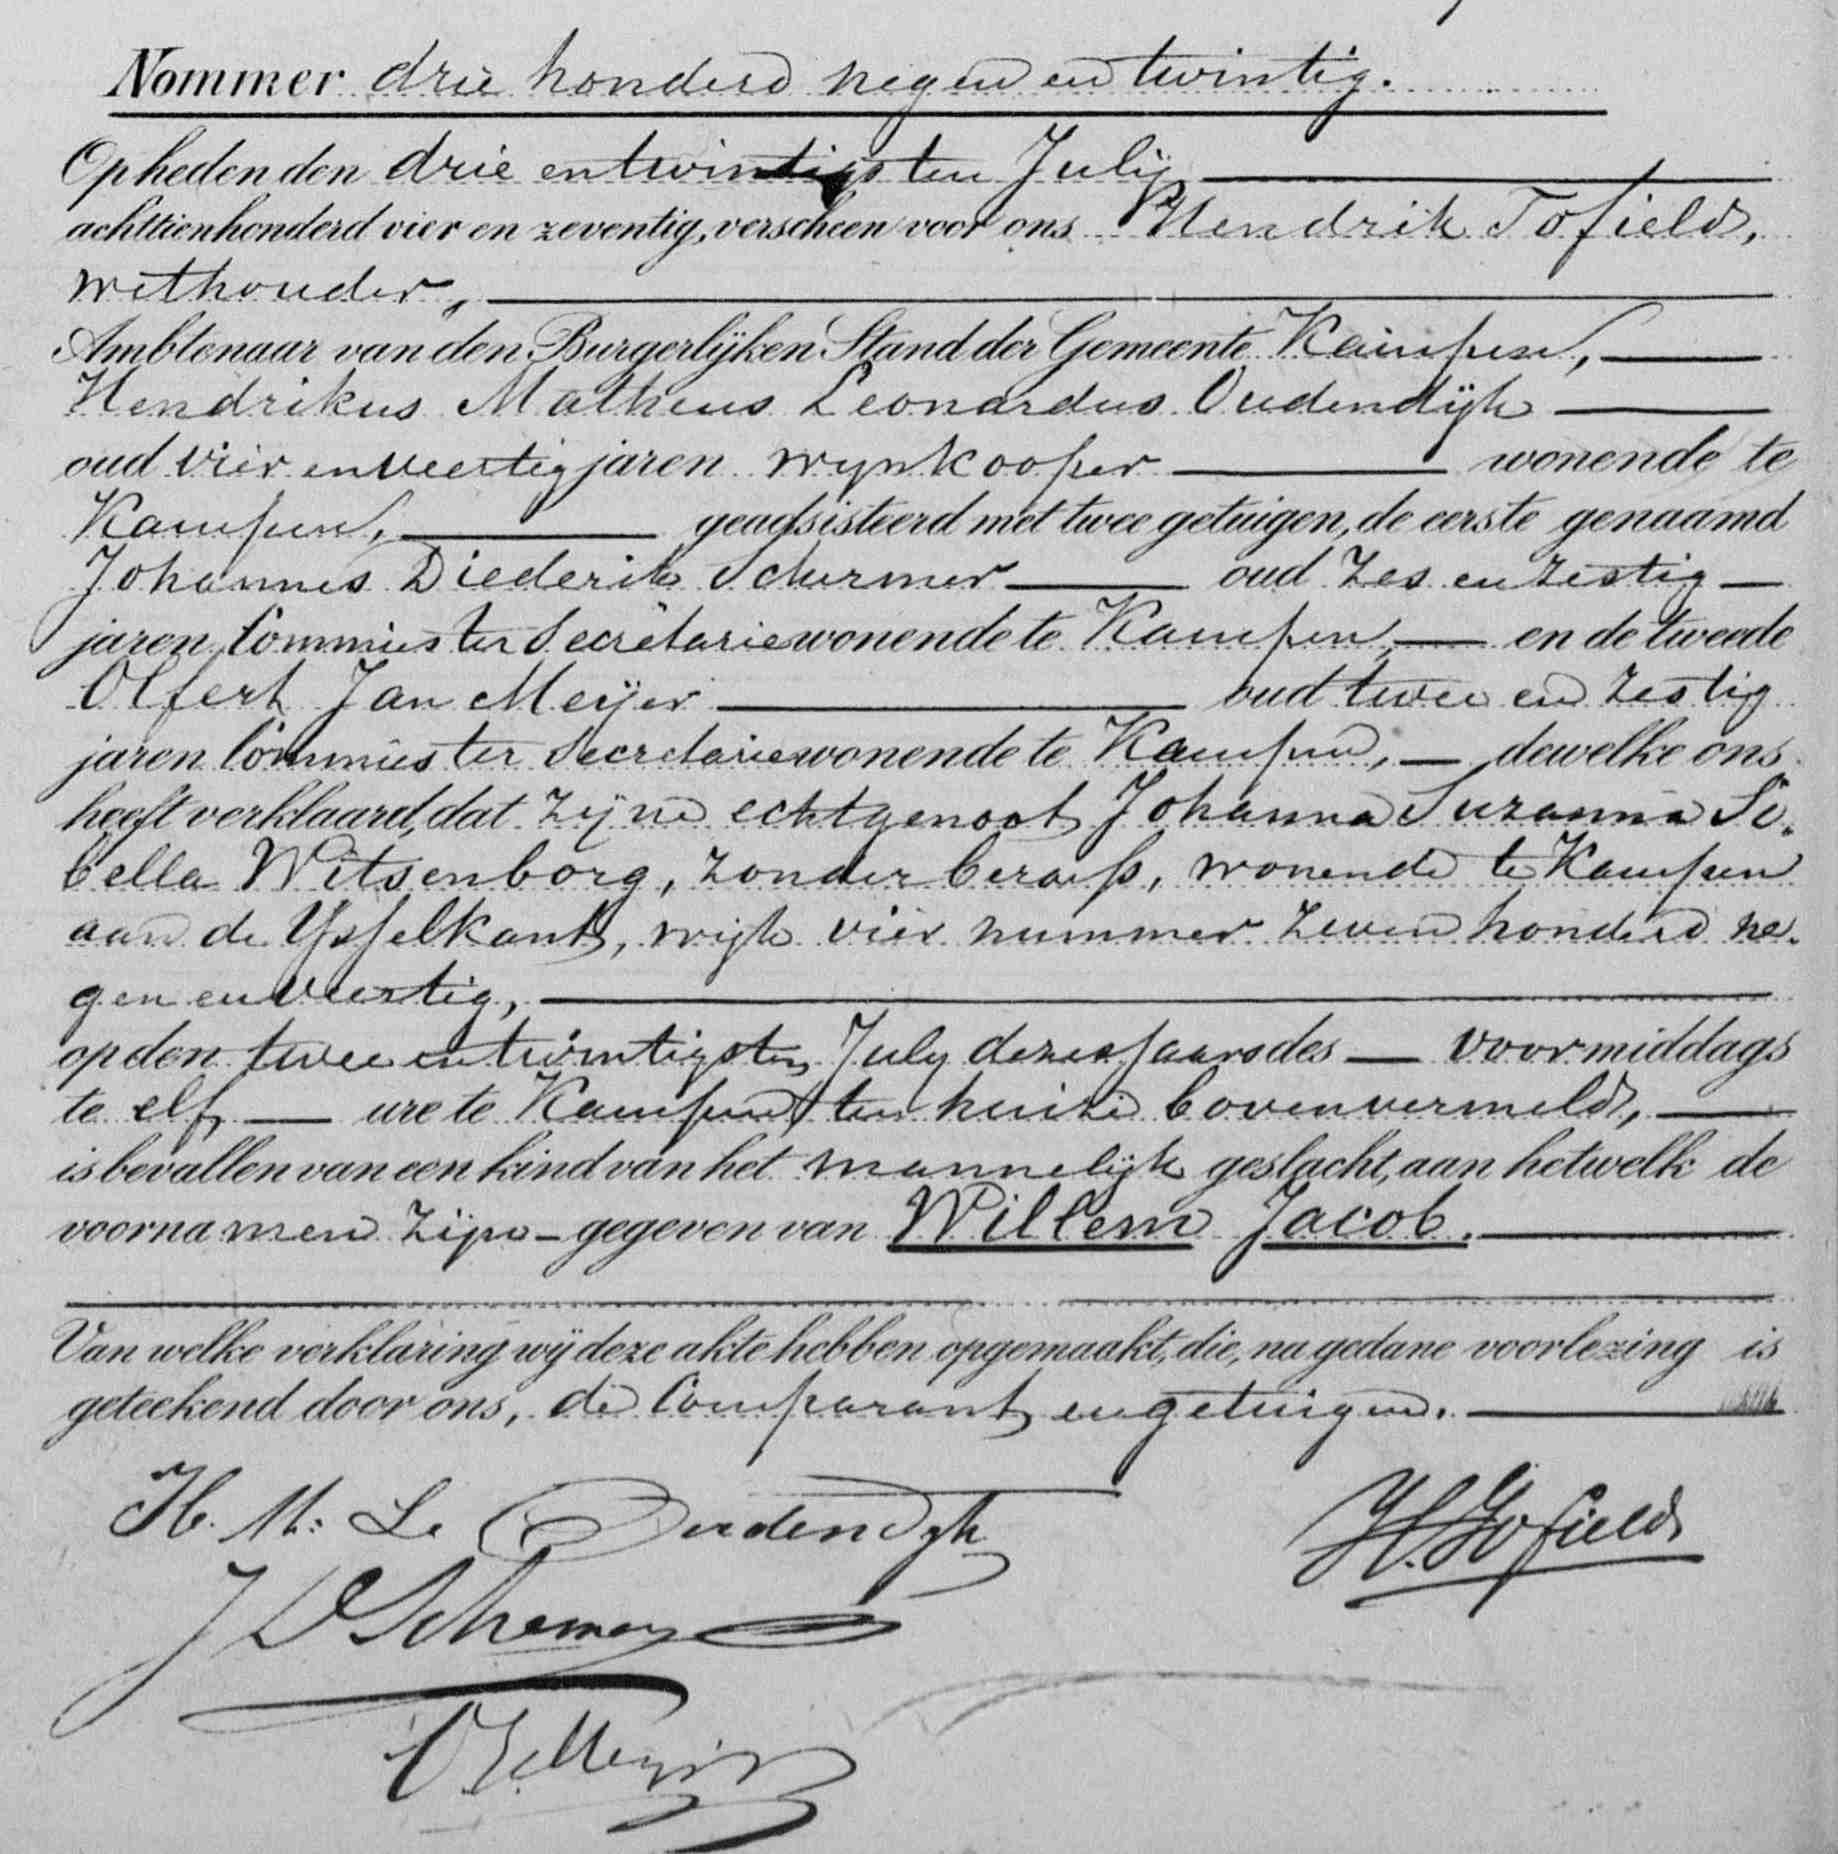 Nommer drie honderd negen en twintig.
Op heden den drie en twintigsten Julij
achttienhonderd vier en zeventig, verscheen voor ons Hendrik Tofield,
wethouder,
Ambtenaar van den Burgerlijken Stand der Gemeente Kampen,
Hendrikus Matheus Leonardus Oudendijk
oud vier en veertig jaren wijnkooper wonende te
Kampen, geadsisteerd met twee getuigen, de eerste genaamd
Johannes Diederik Schermer oud zes en zestig
jaren Commies ter Secretarie wonende te Kampen, en de tweede
Olfert Jan Meijer oud twee en zestig
jaren Commies ter Secretarie wonende te Kampen, dewelke ons
heeft verklaard, dat zijne echtgenoot Johanna Suzanna Si-
bella Witsenborg, zonder beroep, wonende te Kampen
aan de IJsselkant, wijk vier nummer zeven honderd ne-
gen en veertig,
op den twee en twintigsten July dezes jaars des voormiddags
te elf ure te Kampen ten huize bovenvermeld,
is bevallen van een kind van het mannelijk geslacht, aan hetwelk de
voornamen zijn gegeven van Willem Jacob.
Van welke verklaring wij deze akte hebben opgemaakt, die, na gedane voorlezing is
geteekend door ons, de Comparant en getuigen.
H. M. L. Oudendijk
H. Tofield
J D Schermer
O J Meijer